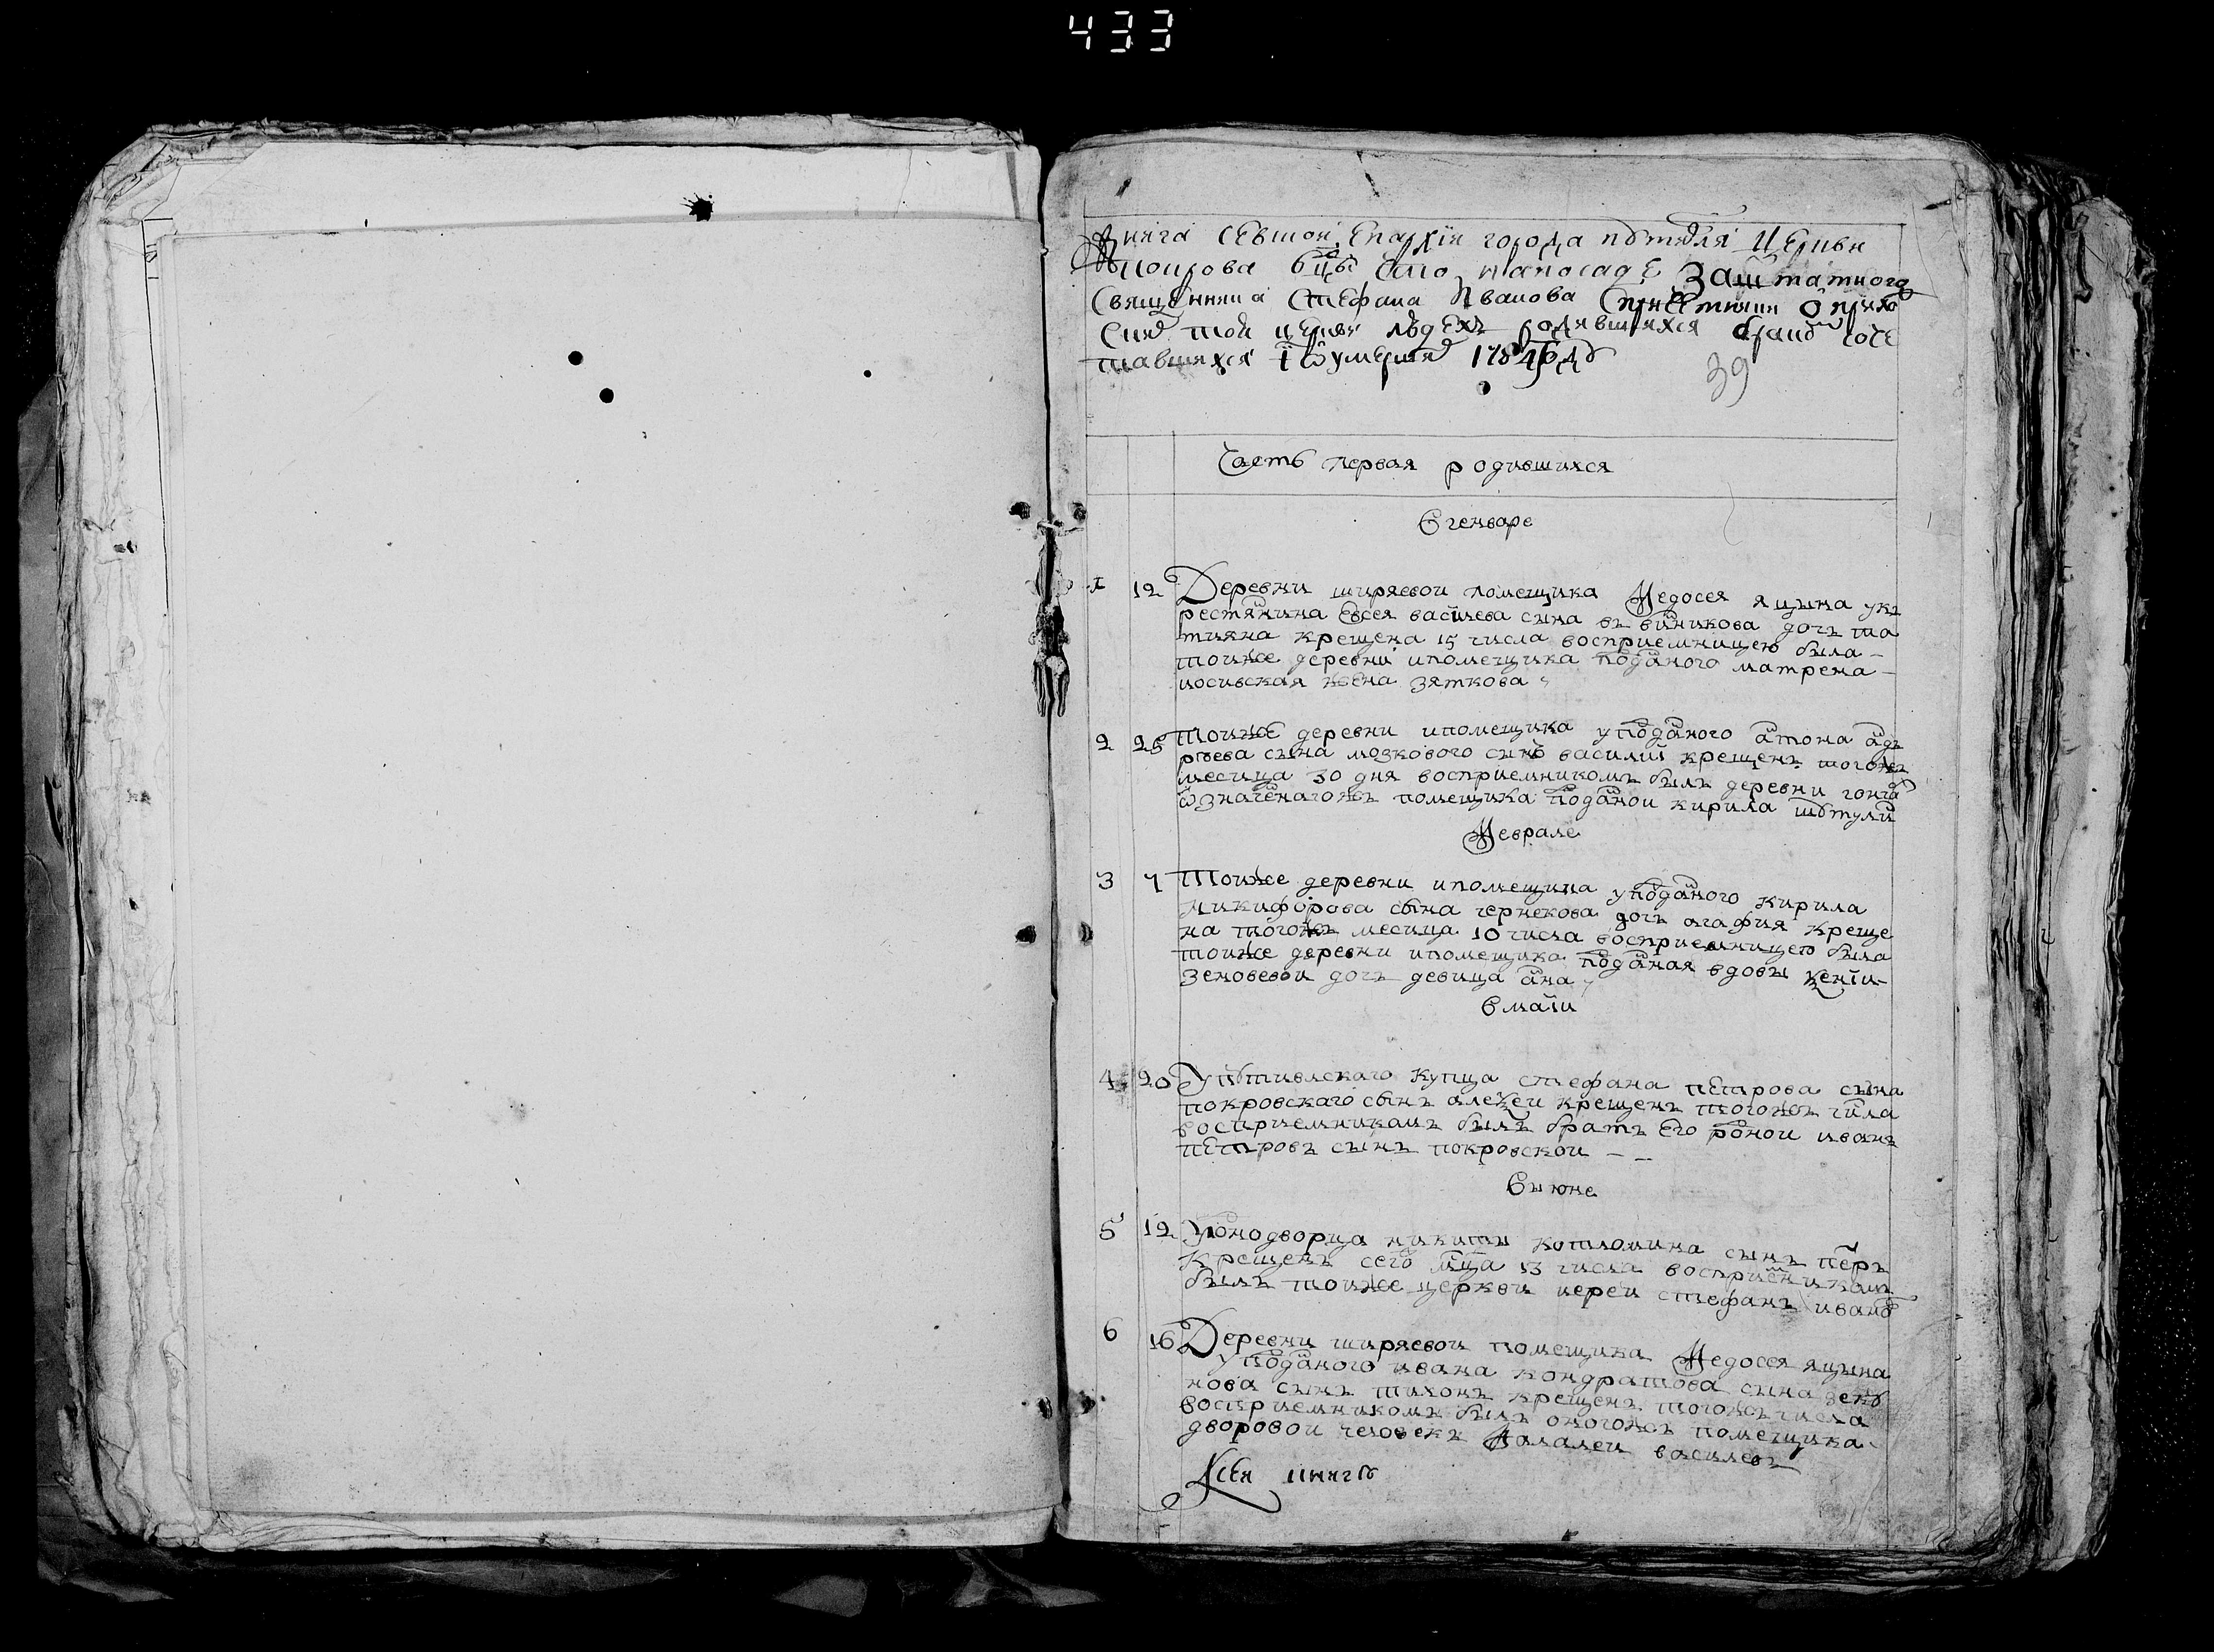 433
Книга Севской Епархїи города пȣтивля Церкви
Покрова бцы что на посаде Заштатного
Священника Стефана Иванова Спричетники О прихо
той церкви людехъ родившихся браком соче
тавшихся ї умерших 1784 годȣ
39
Часть первая родившихся
В генваре
1 12 Деревни ширяевои помещика Ѳедосея яцына укъ
рестянина Евсея василева сына дочь та
тияна крещена 15 числа восприемницею была
тоиже деревни ипомещика поданого матрена
иосивская жена зяткова
2 28 Тоиже деревни ипомещика уподаного антона андъ
реева сына мозкового сынъ василиї крещенъ тогожъ
месеца 30 дня восприемникомъ былъ деревни
ѿзначенагожъ помещика поданои кирила
Ѳеврале
3 7 Тоиже деревни ипомещика уподаного кирила
никифорова сына чернекова дочь агафия креще
на тогожъ месеца 10 числа восприемницею была
тоиже деревни ипомещика поданая вдовы
зеновевои дочь девица анна
В маїи
4 20 Упȣтивлскаго купца стефана петрова сына
покровскаго сынъ алеѯеи крещенъ тогожъ числа
восприемникамъ былъ братъ Его роднои иванъ
петровъ сынъ покровскои
В июне
5 12 Уоднодворца никиты сынъ петръ
Крещенъ сего мца 13 числа восприемникамъ
былъ тоиже церкви иереи стефанъ иванов
6 16 Деревни ширяевои помещика Ѳедосея яцына
уподаного ивана кондратова сына
нова сынъ тихонъ крещенъ тогожъ числа
восприемникомъ былъ оногожъ помещика
дворовои человекъ василевъ
Ксеи книгѣ